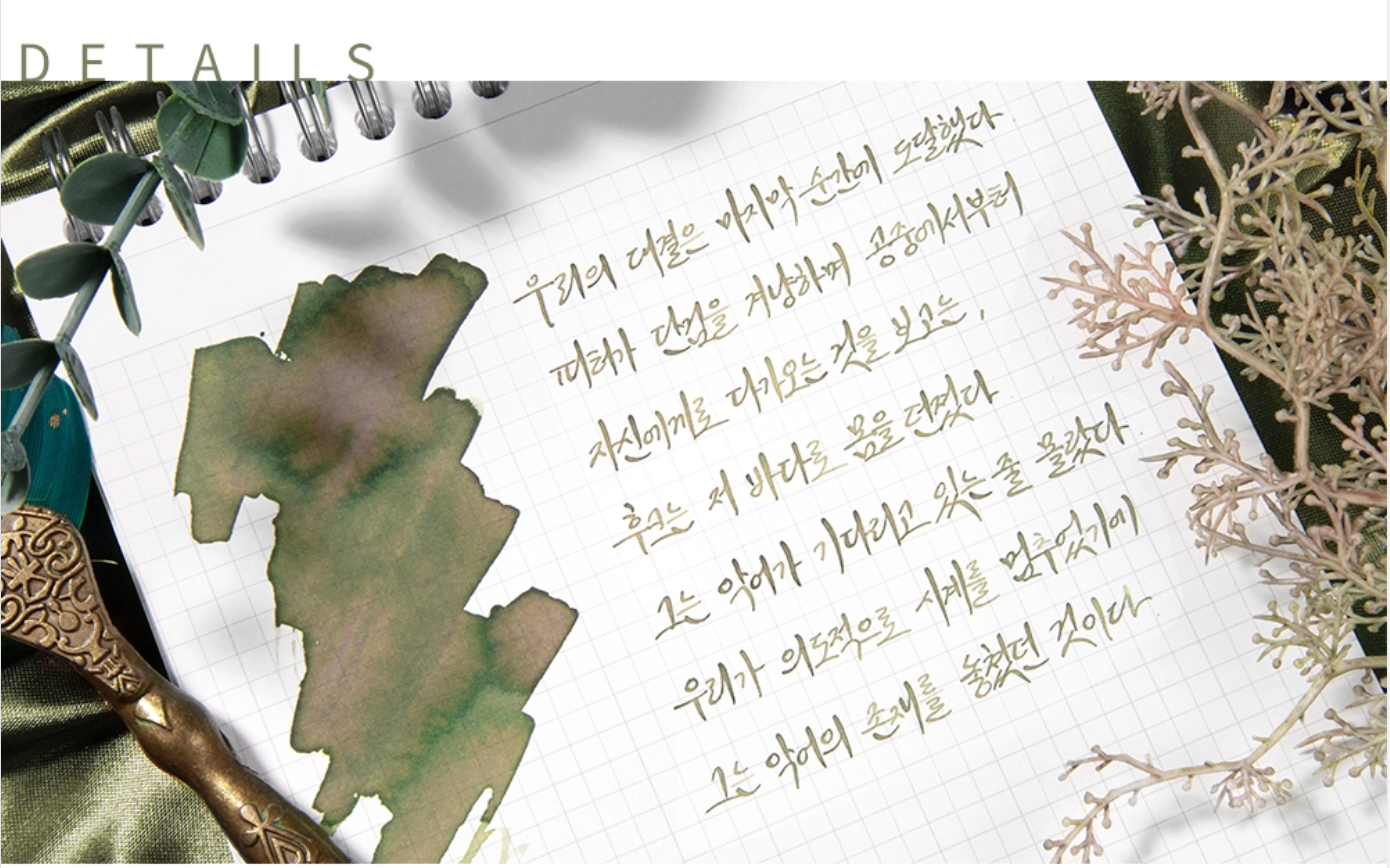 DETAILS
우리의 대결은 마지막 순간에 도달했다.
피터가 단검을 겨냥하며 공중에서부터
자신에게로 다가오는 것을 보고는,
후크는 저 바다로 몸을 던졌다
그는 악어가 기다리고 있는 줄 몰랐다.
우리가 의도적으로 시계를 멈추었기에
그는 악어의 존재를 놓쳤던 것이다.